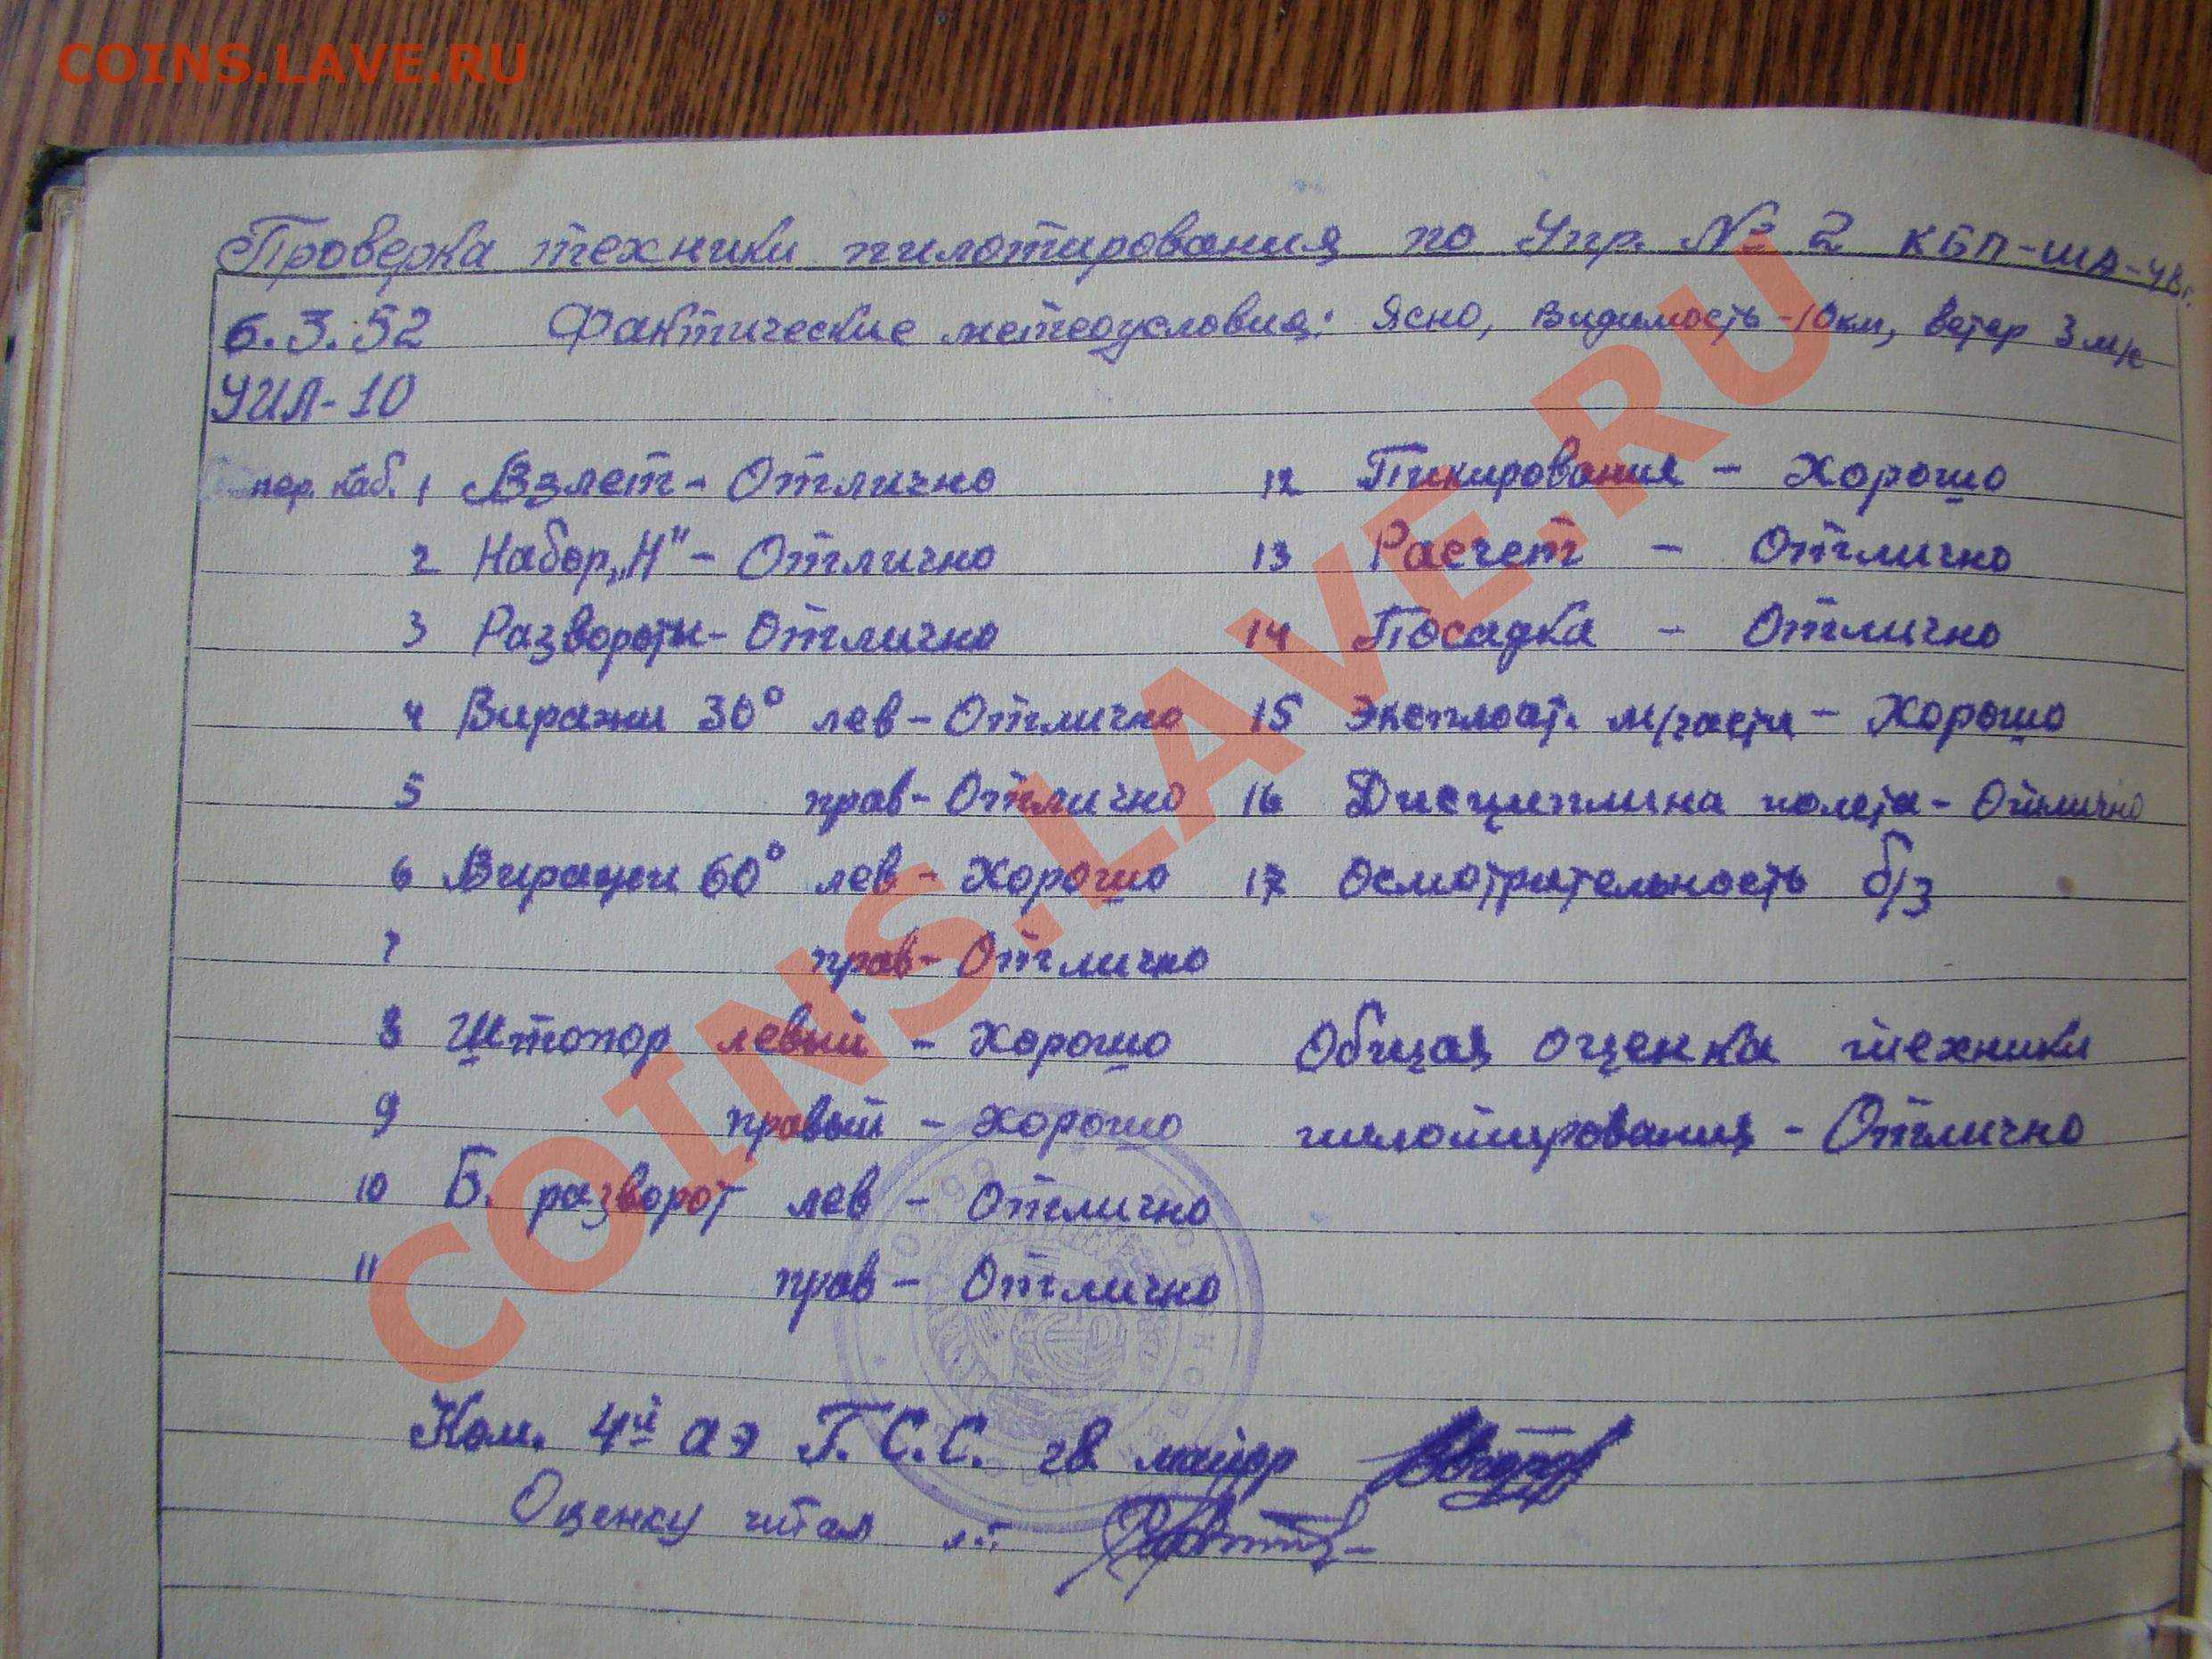 COINS.LAVE.RU
Проверка техники пилотирования по Упр. № 2 КБП-ША-48г.
6.3.52 Фактические метеоусловия: Ясно, видимость-10км, ветер 3 м/с
УИЛ-10
пер. каб. 1 Взлет - Отлично
2 Набор „Н" - Отлично
3 Развороты - Отлично
4 Виражи 30° лев - Отлично
5 прав - Отлично
6 Виражи 60° лев - Хорошо
7 прав - Отлично
8 Штопор левый - Хорошо
9 правый - Хорошо
10 Б. разворот лев - Отлично
11 прав - Отлично
12 Пикирования - Хорошо
13 Расчет - Отлично
14 Посадка - Отлично
15 Эксплоат. м/части - Хорошо
16 Дисциплина полета - Отлично
17 Осмотрительность б/з
Общая оценка техники
пилотирования - Отлично
Ком. 4й аэ Г.С.С. гв. майор
Оценку читал л-т
COINS.LAVE.RU